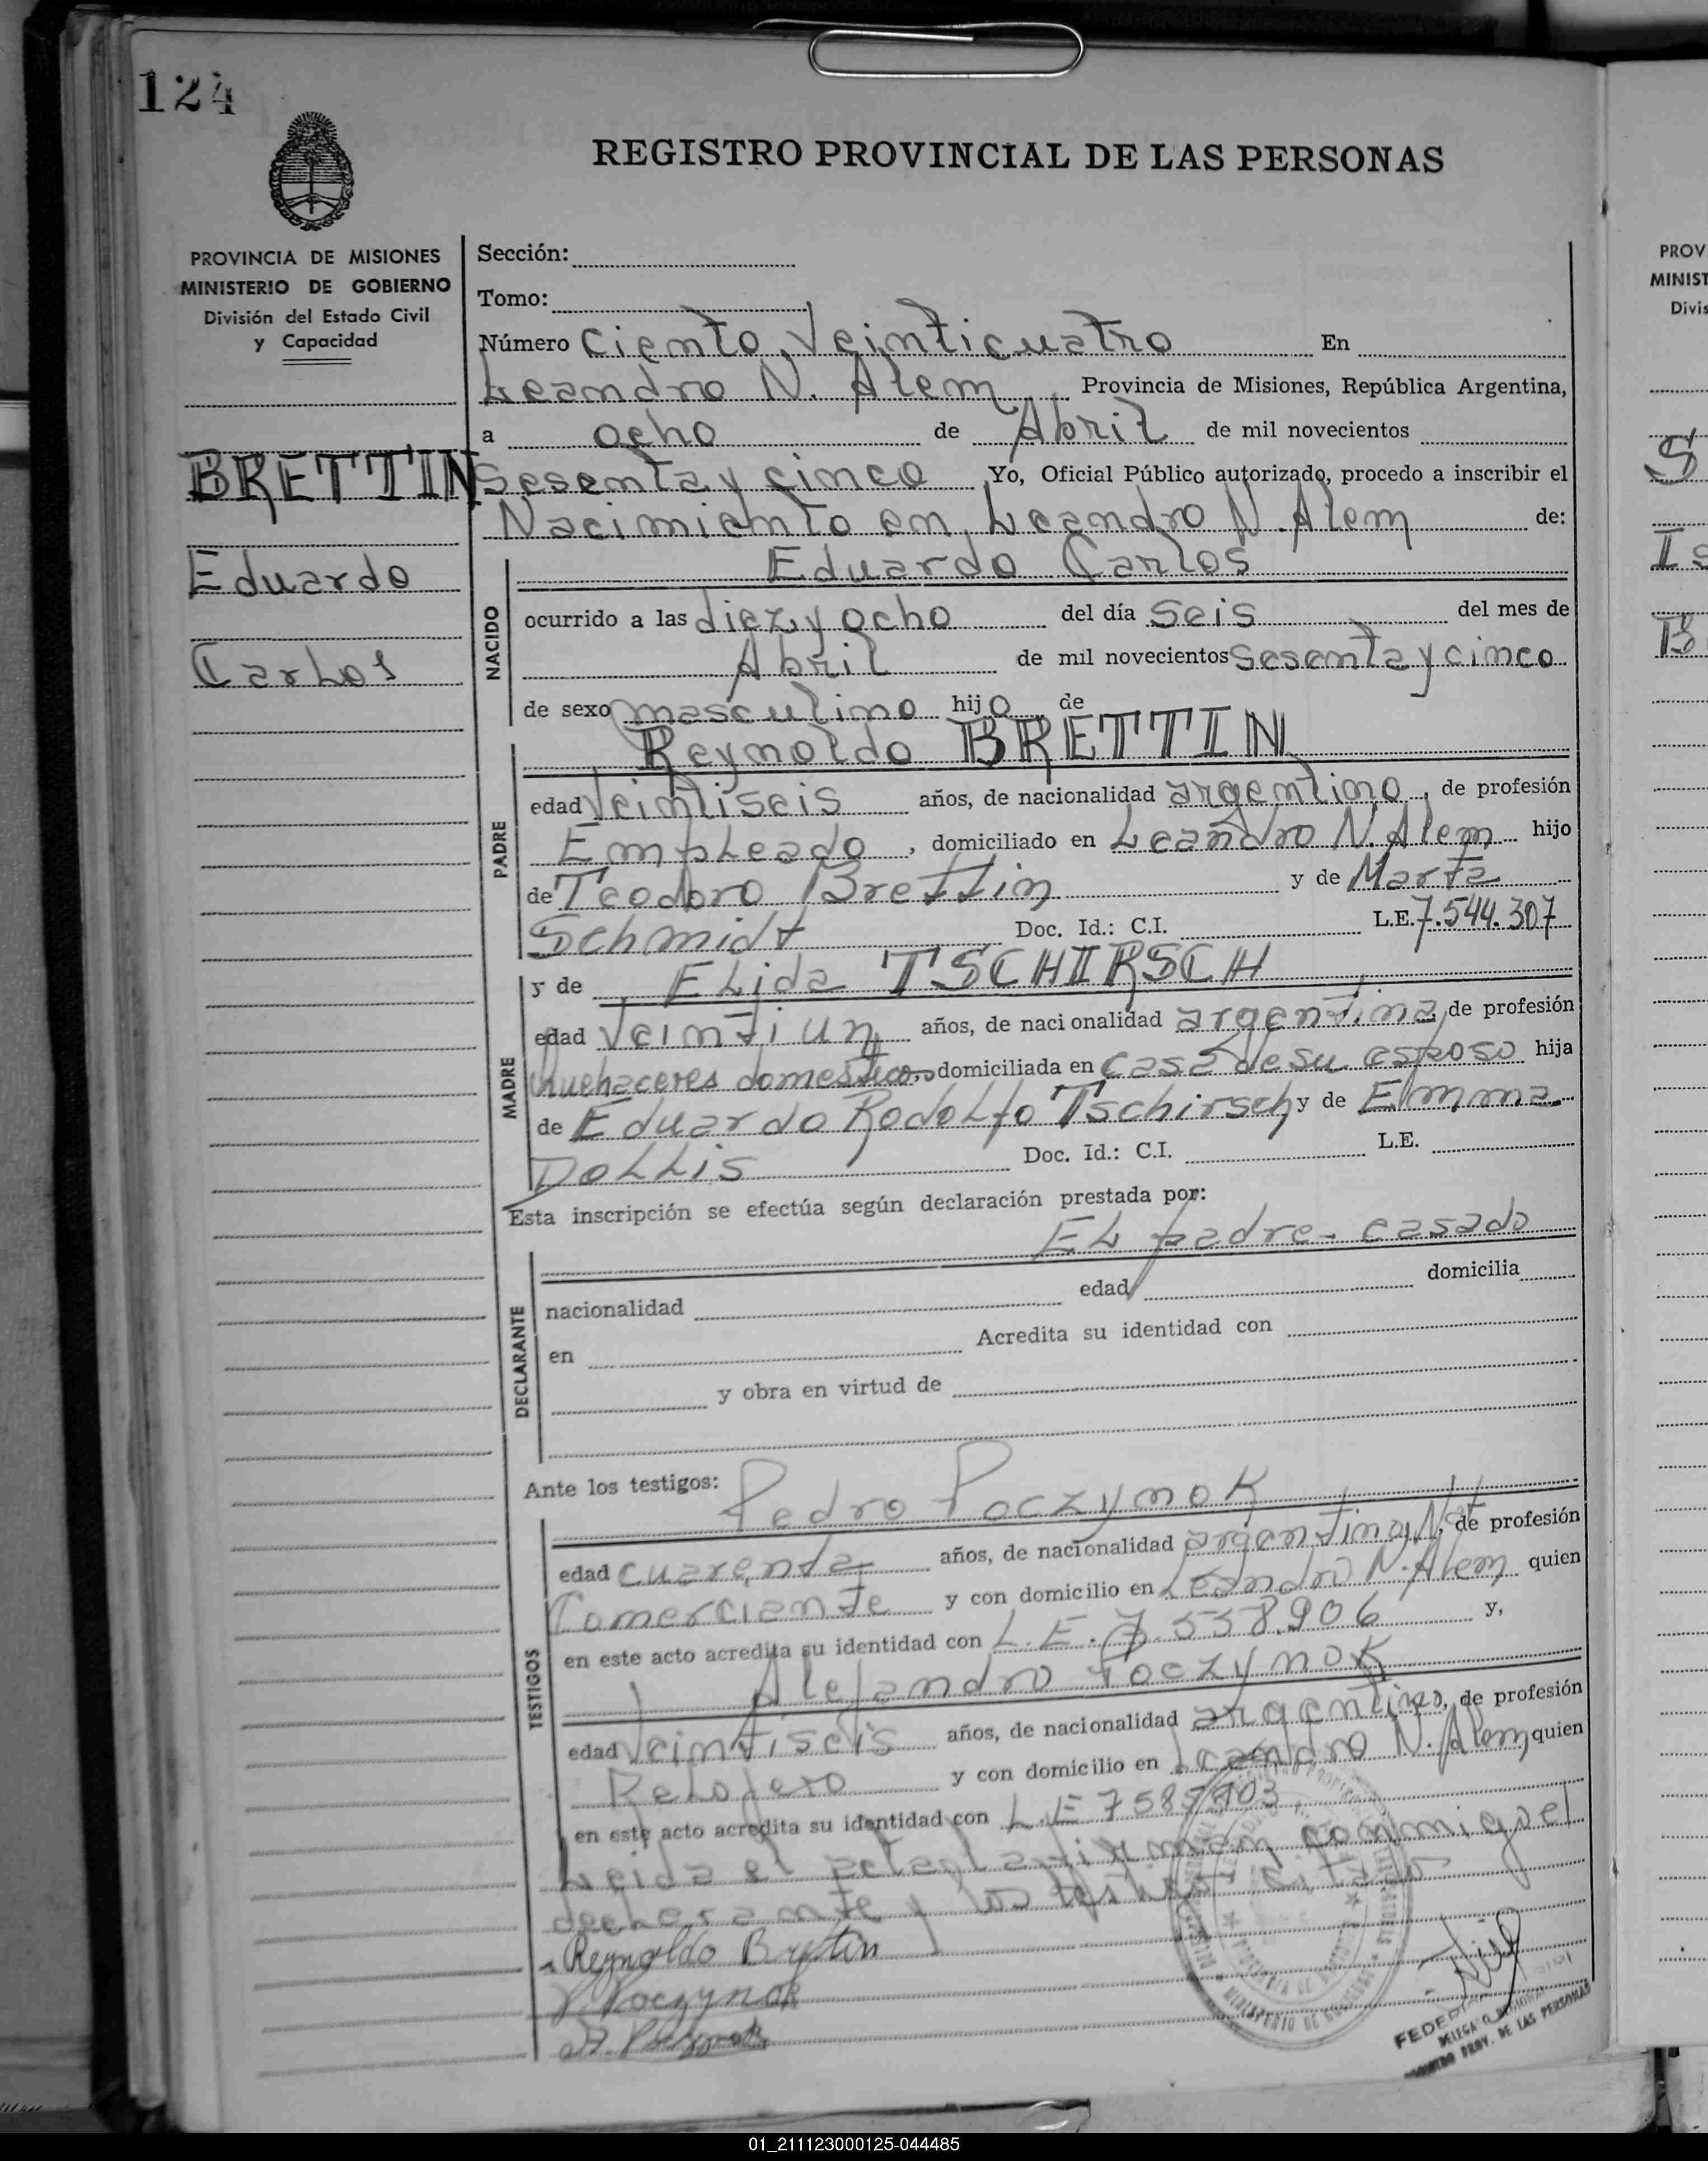 124
REGISTRO PROVINCIAL DE LAS PERSONAS
PROVINCIA DE MISIONES
MINISTERIO DE GOBIERNO
División del Estado Civil
y Capacidad
BRETTIN
Eduardo
Carlos
Sección:
Tomo:
Número Ciento Veinticuatro En
Leandro N. Alem Provincia de Misiones, República Argentina,
a ocho de Abril de mil novecientos
Sesenta y cinco Yo, Oficial Público autorizado, procedo a inscribir el
Nacimiento en Leandro N. Alem de:
Eduardo Carlos
NACIDO
ocurrido a las diez y ocho del día seis del mes de
Abril de mil novecientos sesenta y cinco
de sexo masculino hijo de
Reynoldo BRETTIN
PADRE
edad Veintiseis años, de nacionalidad argentino, de profesión
Empleado, domiciliado en Leandro N. Alem hijo
de Teodoro Brettin y de Marta
Schmidt Doc. Id.: C.I. L.E. 7.544.307
y de Elida TSCHIRSCH
MADRE
edad Veintiun años, de nacionalidad argentina, de profesión
Quehaceres domesticos, domiciliada en casa de su esposo hija
de Eduardo Rodolfo Tschirsch y de Emma
Dollis Doc. Id.: C.I. L.E.
Esta inscripción se efectúa según declaración prestada por:
El padre - casado
DECLARANTE
nacionalidad edad domicilia
en Acredita su identidad con
y obra en virtud de
Ante los testigos:
Pedro Poczynok
TESTIGOS
edad cuarenta años, de nacionalidad argentino, Nat, de profesión
Comerciante y con domicilio en Leandro N. Alem quien
en este acto acredita su identidad con L.E. 7.558.906 y,
Alejandro Poczynok
edad Veintiseis años, de nacionalidad argentino, de profesión
Relojero y con domicilio en Leandro N. Alem quien
en este acto acredita su identidad con L.E 7585903
Leida el acta la firman conmigo el
declarante y los testigos
Reynoldo Brettin
P. Poczynok
A. Poczynok
MINISTERIO DE GOBIERNO
DELEGADO
REGISTRO PROV. DE LAS PERSONAS
PROV
MINIST
Divis
01_211123000125-044485